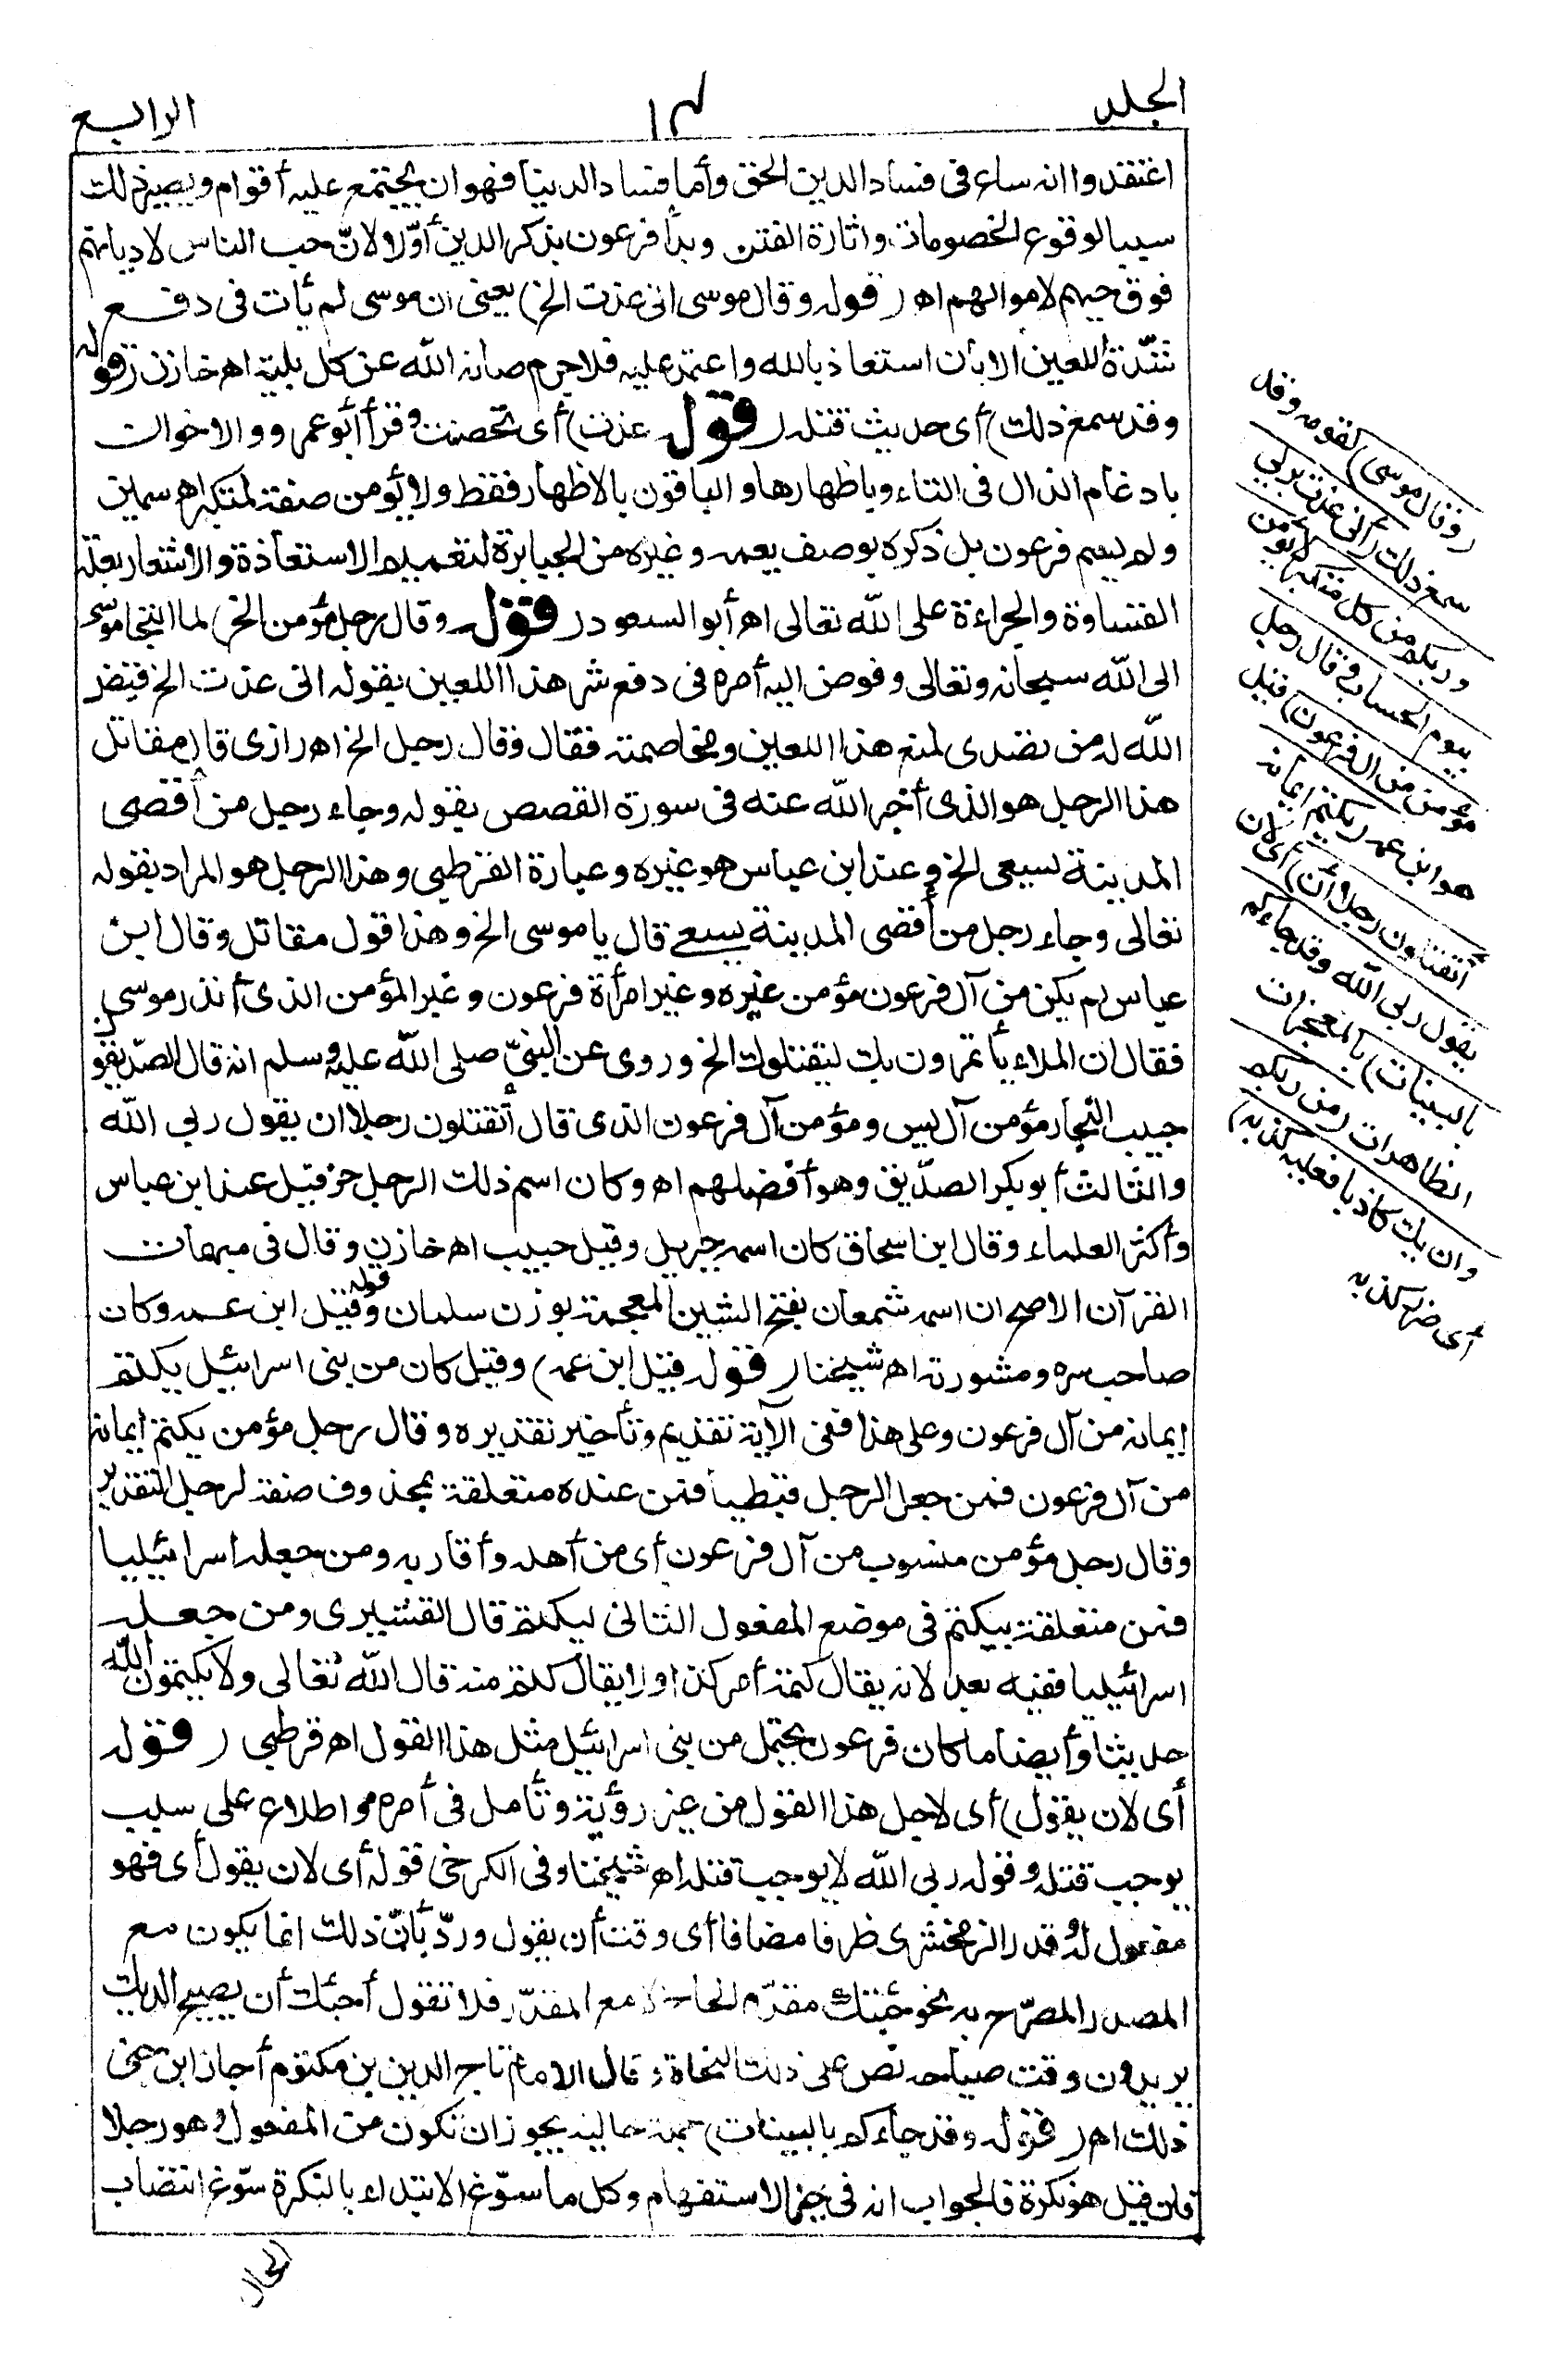 الجلد
١٣
الرابع
اعتقدوا انه ساع فى فساد الدين الحق وأما فساد الدنيا فهو ان يجتمع عليه أقوام ويصير ذلك
سببا لوقوع الخصومات واثارة الفتن وبدأ فرعون بذكر الدين أوّلا لانّ حب الناس لاديانهم
فوق حبهم لاموالهم اه (قوله وقال موسى انى عذت الخ) يعنى ان موسى لم يأت فى دفع
شدّة اللعين الا بان استعاذ بالله واعتمد عليه فلا جرم صانه الله عن كل بلية اه خازن (قوله
وقد سمع ذلك) أى حديث قتله (قوله عذت) أى تحصنت وقرأ أبو عمرو والاخوان
بادغام الذال فى التاء وباظهارها والباقون بالاظهار فقط ولا يؤمن صفة لمتكبر اه سمين
ولم يسم فرعون بل ذكره بوصف يعمه وغيره من الجبابرة لتعميم الاستعاذة والاشعار بعلة
القساوة والجراءة على الله تعالى اه أبو السعود (قوله وقال رجل مؤمن الخ) لما التجأ موسى
الى الله سبحانه وتعالى وفوض اليه أمره فى دفع شر هذا اللعين بقوله انى عذت الخ قيض
الله له من تصدى لمنع هذا اللعين ومخاصمته فقال وقال رجل الخ اه رازى قال مقاتل
هذا الرجل هو الذى أخبر الله عنه فى سورة القصص بقوله وجاء رجل من أقصى
المدينة يسعى الخ وعند ابن عباس هو غيره وعبارة القرطبى وهذا الرجل هو المراد بقوله
تعالى وجاء رجل من أقصى المدينة يسعى قال يا موسى الخ وهذا قول مقاتل وقال ابن
عباس لم يكن من آل فرعون مؤمن غيره وغير امرأة فرعون وغير المؤمن الذى أنذر موسى
فقال ان الملاء يأتمرون بك ليقتلوك الخ وروى عن النبىّ صلى الله عليه وسلم انه قال الصدّيقو
حبيب النجار مؤمن آل يس ومؤمن آل فرعون الذى قال أتقتلون رجلا ان يقول ربى الله
والثالث أبو بكر الصدّيق وهو أفضلهم اه وكان اسم ذلك الرجل حزقيل عند ابن عباس
وأكثر العلماء وقال ابن اسحاق كان اسمه جبريل وقيل حبيب اه خازن وقال فى مبهمات
القرآن الاصح ان اسمه شمعان بفتح الشين المعجمة بوزن سلمان وقوله قيل ابن عمه وكان
صاحب سره ومشورته اه شيخنا (قوله قيل ابن عمه) وقيل كان من بنى اسرائيل يكتم
إيمانه من آل فرعون وعلى هذا ففى الآية تقديم وتأخير تقديره وقال رجل مؤمن يكتم ايمانه
من آل فرعون فمن جعل الرجل قبطيا فمن عنده متعلقة بمحذوف صفة لرجل التقدير
وقال رجل مؤمن منسوب من آل فرعون أى من أهله وأقاربه ومن جعله اسرائيليا
فمن متعلقة بيكتم فى موضع المفعول الثانى ليكتم قال القشيرى ومن جعله
اسرائيليا ففيه بعد لانه يقال كتمه أمر كذا ولا يقال كتم منه قال الله تعالى ولا يكتمون الله
حديثا وأيضا ما كان فرعون يحتمل من بنى اسرائيل مثل هذا القول اه قرطبى (قوله
أى لان يقول) أى لاجل هذا القول من غير رؤية وتأمل فى أمره واطلاع على سبب
يوجب قتله وقوله ربى الله لا يوجب قتله اه شيخنا وفى الكرخى قوله أى لان يقول أى فهو
مفعول له وقدر الزمخشرى ظرفا مضافا أى وقت أن يقول وردّ بأنّ ذلك انما يكون مع
المصدر المصرّح به نحو جئتك مقدم الحاج لا مع المقدّر فلا تقول أجيئك أن يصيح الديك
يريدون وقت صياحه نص على ذلك النحاة وقال الامام تاج الدين بن مكتوم أجاز ابن جنى
ذلك اه (قوله وقد جاءكم بالبينات) جملة حالية يجوز ان تكون من المفعول وهو رجلا
فان قيل هو نكرة فالجواب انه فى حيز الاستفهام وكل ما سوّغ الابتداء بالنكرة سوّغ انتصاب
الحال
(وقال موسى) لقومه وقد
سمع ذلك (أنى عذت بربى
وربكم من كل متكبر لا يؤمن
بيوم الحساب وقال رجل
مؤمن من آل فرعون) قيل
هو ابن عمه (يكتم ايمانه
أتقتلون رجلا أن) أى لان
يقول ربى الله وقد جاءكم
بالبينات) بالمعجزات
الظاهرات (من ربكم
وان يك كاذبا فعليه كذبه)
أى ضرر كذبه